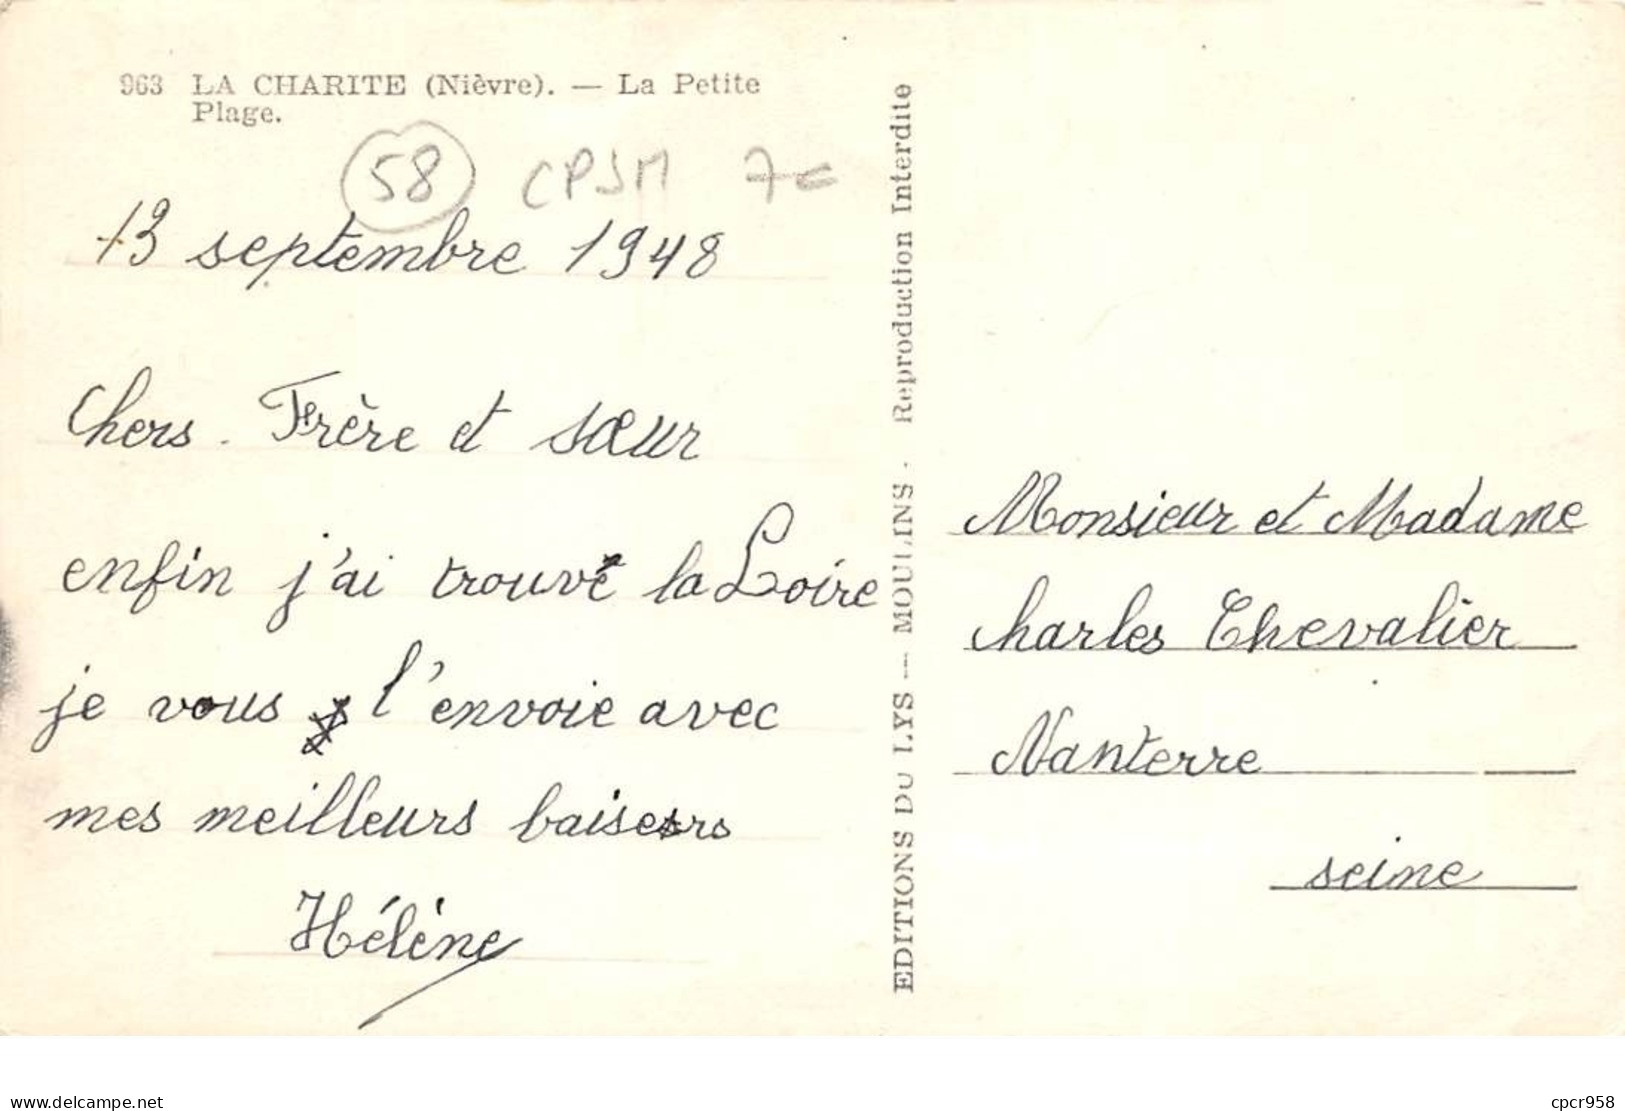 963 LA CHARITE (Nièvre). — La Petite
Plage.
58 CPSM 7€
13 septembre 1948
Chers Frère et sœur
enfin j'ai trouvé la Loire
je vous l'envoie avec
mes meilleurs baisers
Hélène
EDITIONS DU LYS — MOULINS - Reproduction Interdite
Monsieur et Madame
Charles Chevalier
Nanterre
seine
www.delcampe.net
cpcr958